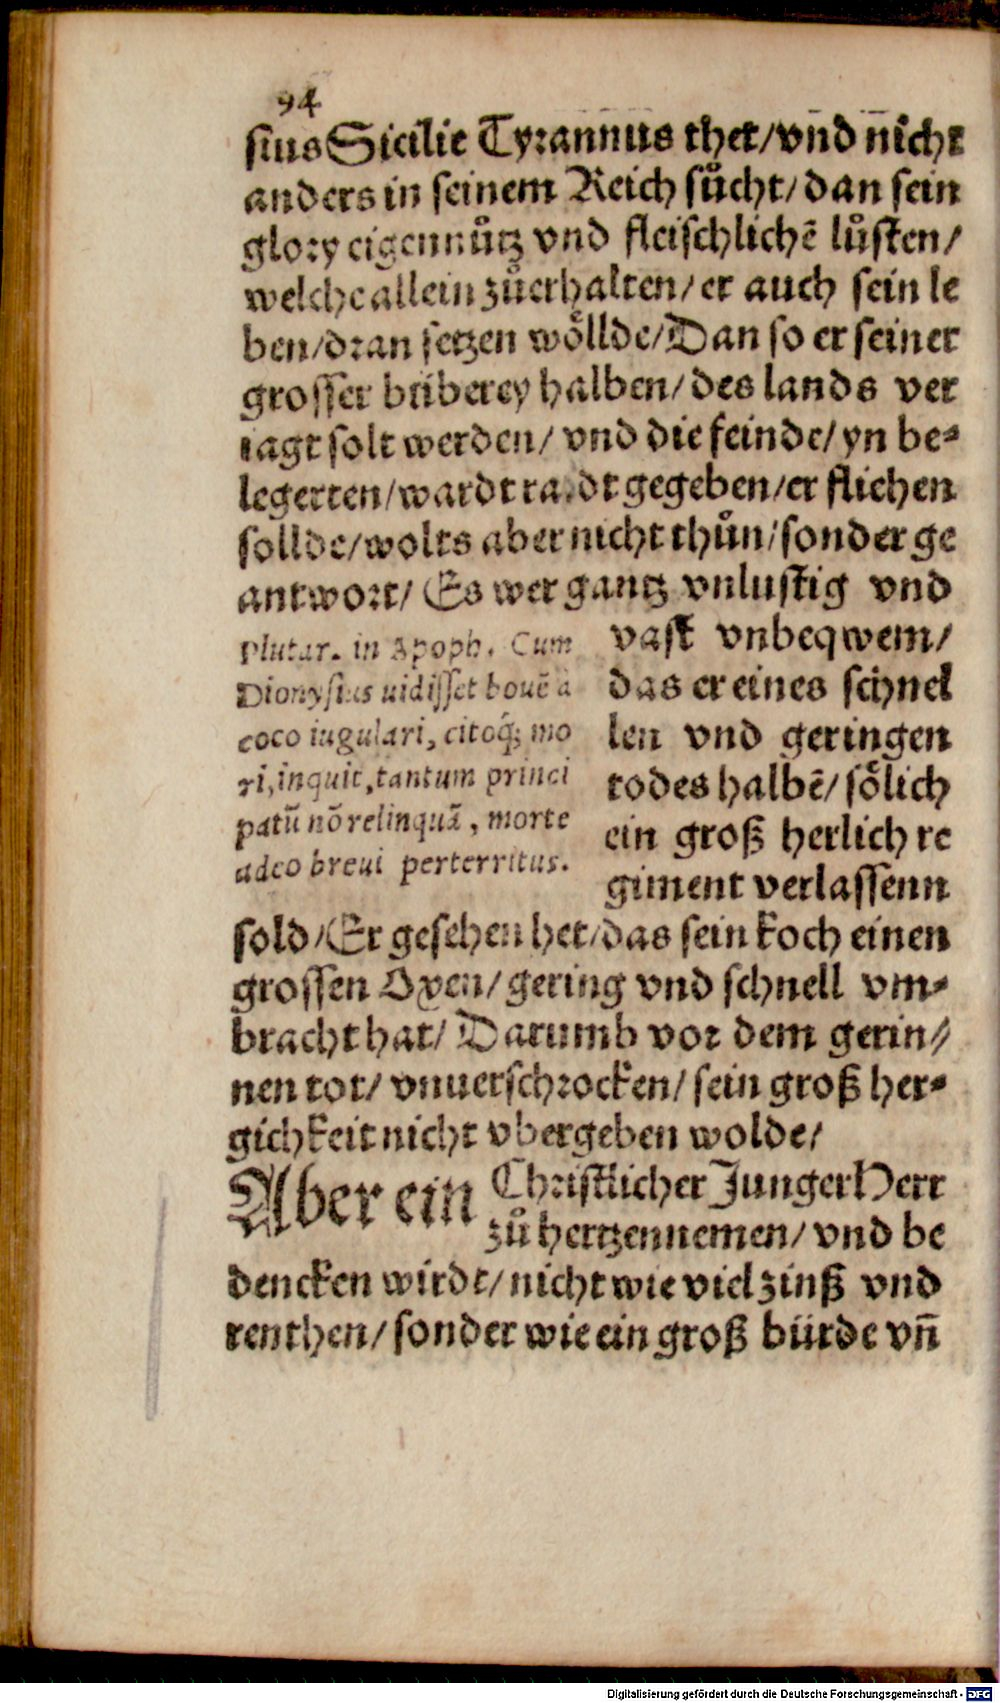 94
sius Sicilie Tyrannus thet/vnd nicht
anders in seinem Reich sůcht/dan sein
glory eigennůtz vnd fleischlichē lůsten/
welche allein zůerhalten/er auch sein le
ben/dran setzen wöllde/Dan so er seiner
grosser büberey halben/des lands ver
iagt solt werden/ vnd die feinde/yn be-
legerten/wardt radt gegeben/er fliehen
sollde/wolts aber nicht thůn/sonder ge
antwort/ Es wer gantz vnlustig vnd
vast vnbeqwem/
das er eines schnel
len vnd geringen
todes halbē/sölich
ein groß herlich re
giment verlassenn
Plutar. in Apoph. Cum
Dionysius uidisset bouē à
coco iugulari, citoq́; mo
ri, inquit, tantum princi
patū nō relinquā, morte
adeo breui perterritus.
sold/Er gesehen het/das sein koch einen
grossen Oxen/gering vnd schnell vm-
bracht hat/ Darumb vor dem gerin-
nen tot/ vnuerschrocken/sein groß her-
gichkeit nicht vbergeben wolde/
Aber ein Christlicher Junger Herr
zů hertzennemen/vnd be
dencken wirdt/nicht wie viel zinß vnd
renthen/sonder wie ein groß bürde vñ
Digitalisierung gefördert durch die Deutsche Forschungsgemeinschaft - DFG